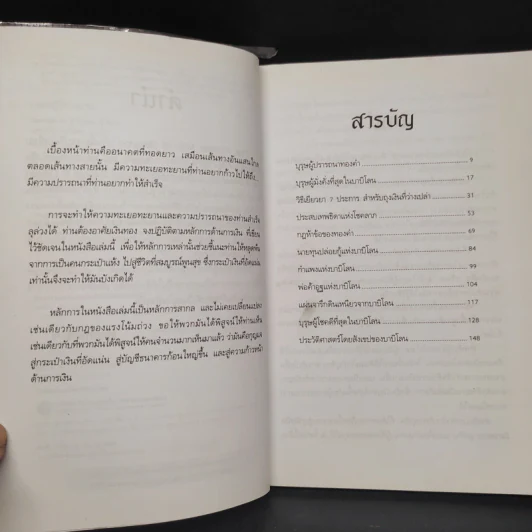 เบื้องหน้าท่านคืออนาคตที่ทอดยาว เหมือนเส้นทางอันแสนไกล
ตลอดเส้นทางสายนั้น มีความทะเยอทะยานที่ท่านอยากก้าวไปให้ถึง
มีความปรารถนาที่ท่านอยากทำให้สำเร็จ
การจะทำให้ความทะเยอทะยานและความปรารถนาของท่านสำเร็จ
ลุล่วงได้ ท่านต้องอาศัยเงินทอง จงปฏิบัติตามหลักการด้านการเงิน ที่เขียน
ไว้ชัดเจนในหนังสือเล่มนี้ เพื่อให้หลักการเหล่านั้นช่วยชี้แนะท่านให้หลุดพ้น
จากการเป็นคนกระเป๋าแห้ง ไปสู่ชีวิตที่สมบูรณ์พูนสุข ซึ่งกระเป๋าเงินที่อัดแน่น
เท่านั้นจึงจะทำให้มันบังเกิดได้
หลักการในหนังสือเล่มนี้เป็นหลักการสากล และไม่เคยเปลี่ยนแปลง
เช่นเดียวกับกฎของแรงโน้มถ่วง ขอให้พวกมันได้พิสูจน์ให้ท่านเห็น
เช่นเดียวกับที่พวกมันได้พิสูจน์ให้คนจำนวนมากเห็นมาแล้ว ว่ามันคือกุญแจ
สู่กระเป๋าเงินที่อัดแน่น สู่บัญชีธนาคารก้อนใหญ่ขึ้น และสู่ความก้าวหน้า
ด้านการเงิน
สารบัญ
บุรุษผู้ปรารถนาทองคำ 9
บุรุษผู้มั่งคั่งที่สุดในบาบิโลน 17
วิธีเยียวยา 7 ประการ สำหรับถุงเงินที่ว่างเปล่า 31
ประสบเทพธิดาแห่งโชคลาภ 53
กฎห้าข้อของทองคำ
นายทุนปล่อยกู้แห่งบาบิโลน 84
กำแพงแห่งบาบิโลน 99
พ่อค้าอูฐแห่งบาบิโลน 104
แผ่นจารึกดินเหนียวจากบาบิโลน 117
บุรุษผู้โชคดีที่สุดในบาบิโลน 128
ประวัติศาสตร์โดยสังเขปของบาบิโลน 148